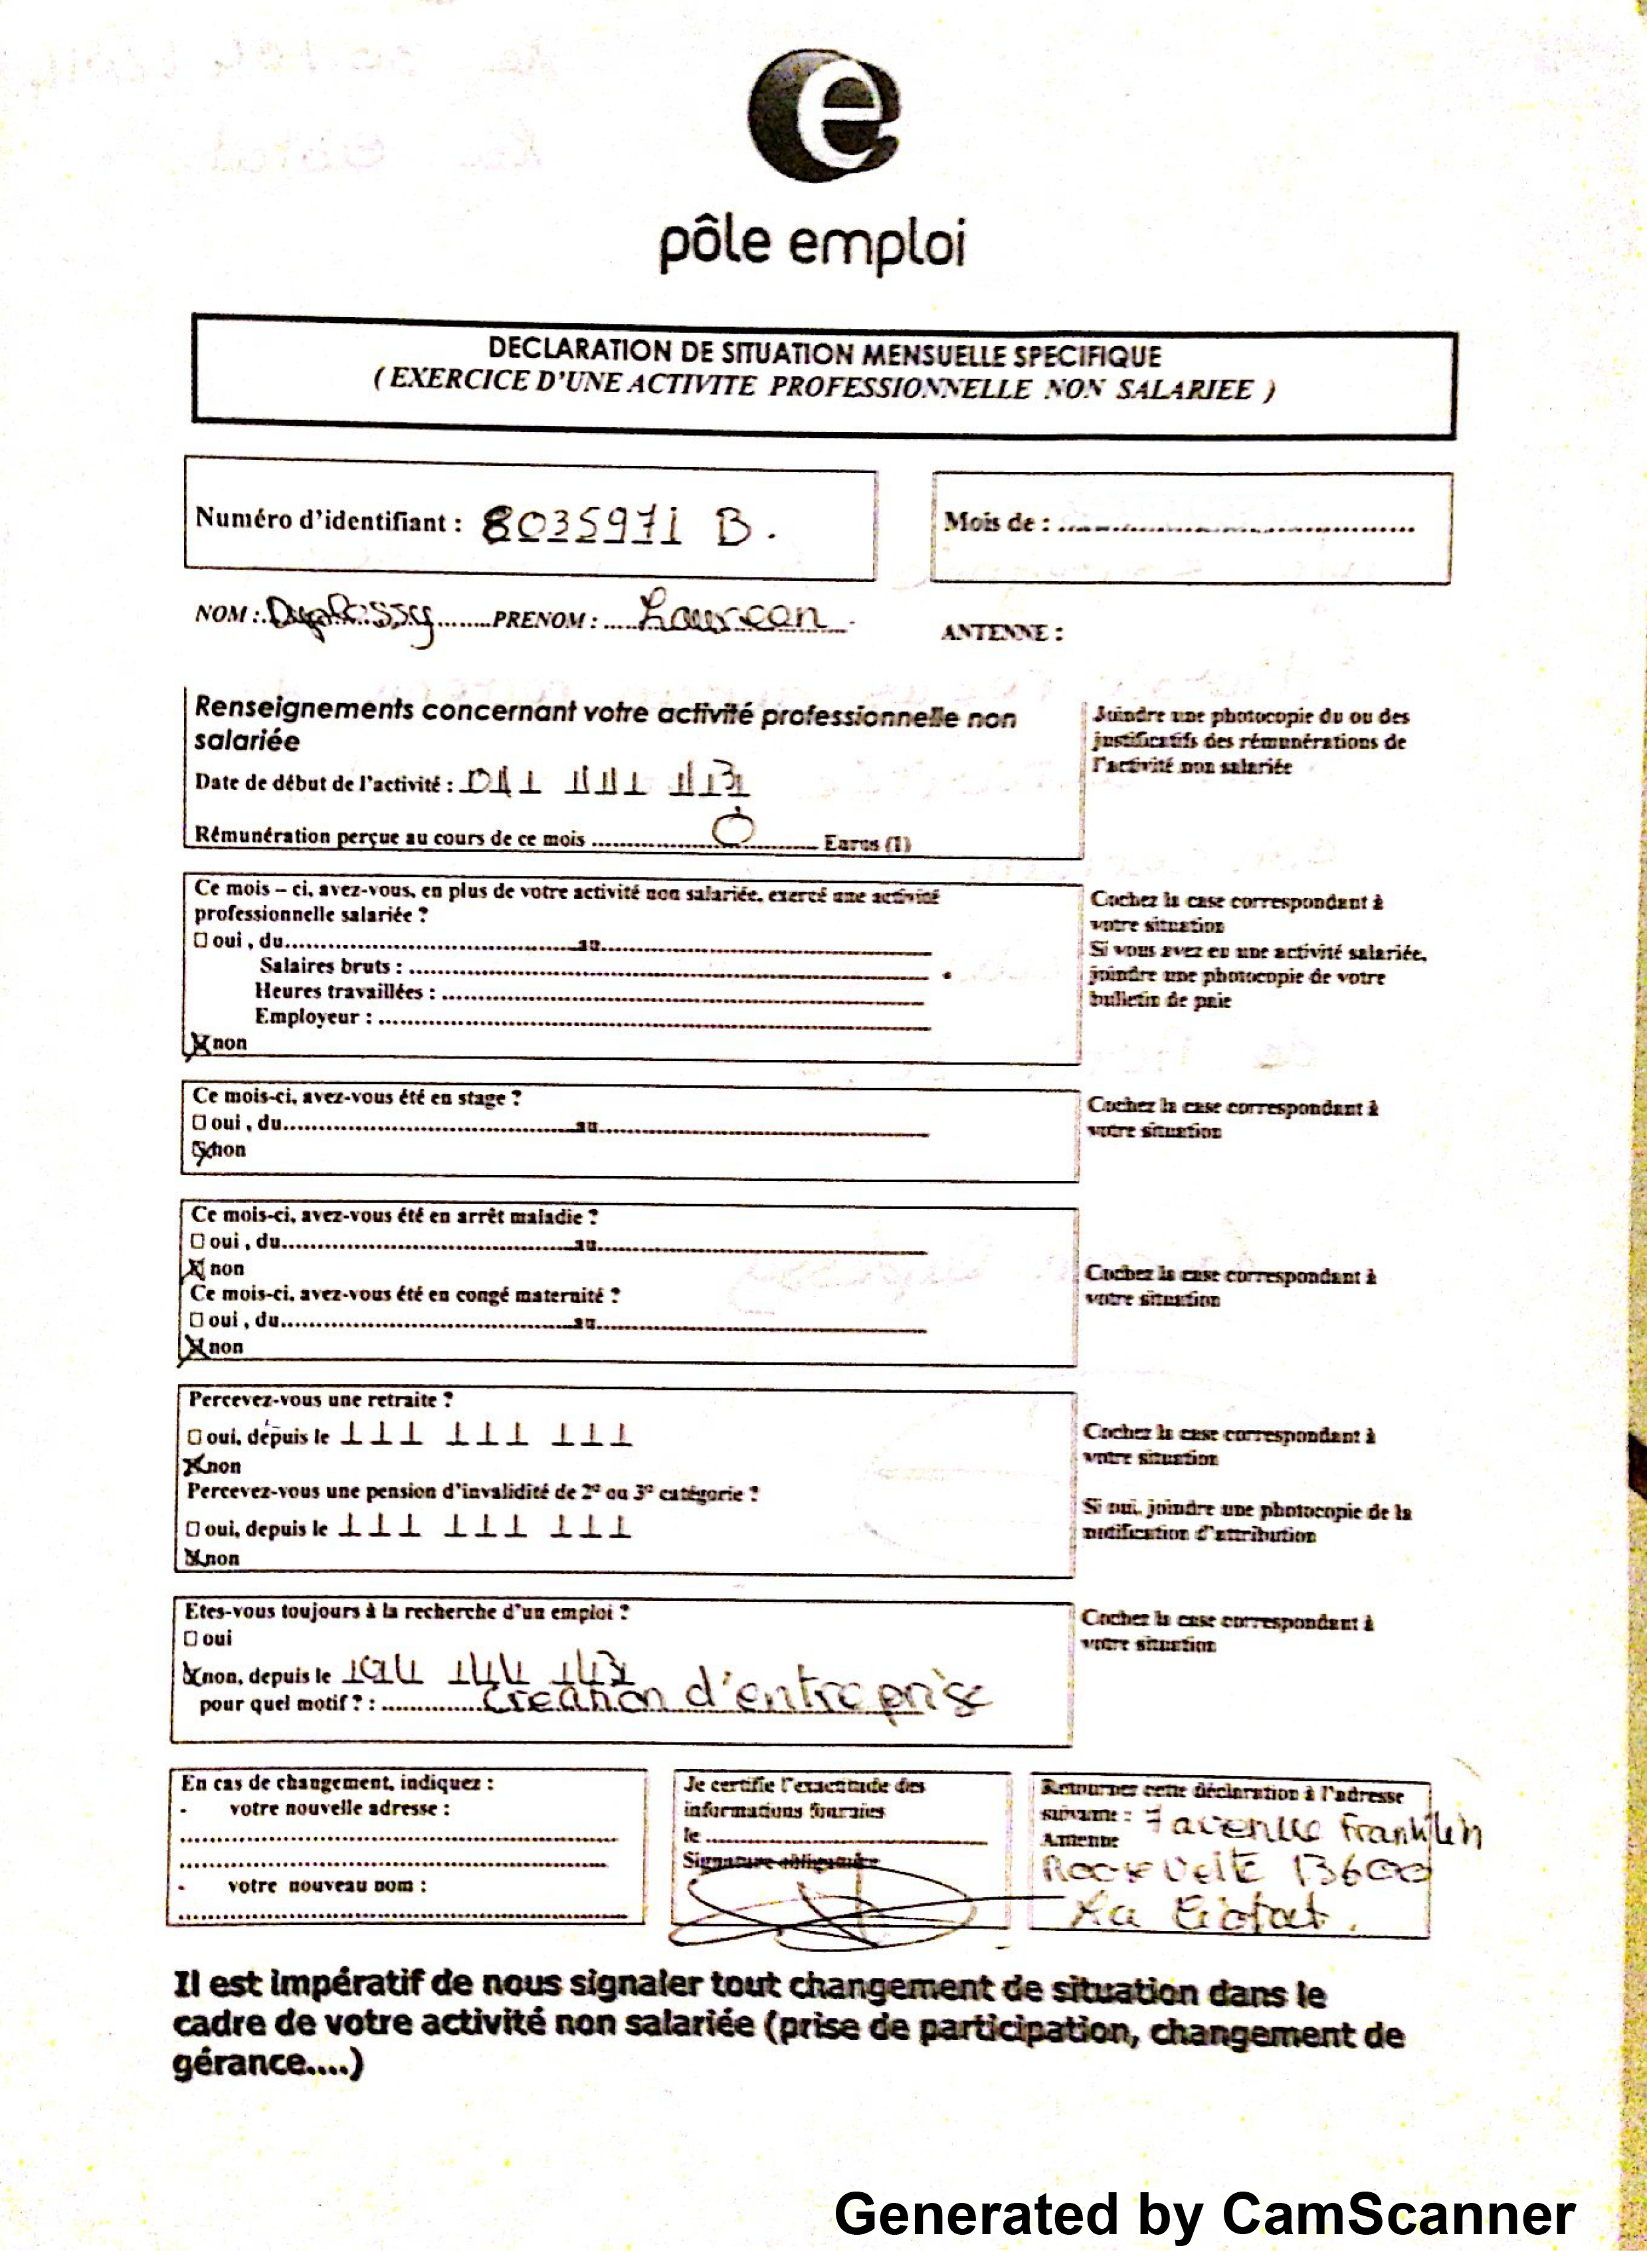 e
pôle emploi
DECLARATION DE SITUATION MENSUELLE SPECIFIQUE
( EXERCICE D'UNE ACTIVITE PROFESSIONNELLE NON SALARIEE )
Numéro d'identifiant : 8035971 B.
Mois de :
NOM : Duplessy PRENOM :
ANTENNE :
Renseignements concernant votre activité professionnelle non
salariée
Date de début de l'activité :
Rémunération perçue au cours de ce mois 0 Euros (1)
Joindre une photocopie du ou des
justificatifs des rémunérations de
l'activité non salariée
Ce mois – ci, avez-vous, en plus de votre activité non salariée, exercé une activité
professionnelle salariée ?
oui , du au
Salaires bruts :
Heures travaillées :
Employeur :
non
Cochez la case correspondant à
votre situation
Si vous avez eu une activité salariée,
joindre une photocopie de votre
bulletin de paie
Ce mois-ci, avez-vous été en stage ?
oui , du au
non
Cochez la case correspondant à
votre situation
Ce mois-ci, avez-vous été en arrêt maladie ?
oui , du au
non
Ce mois-ci, avez-vous été en congé maternité ?
oui , du au
non
Cochez la case correspondant à
votre situation
Percevez-vous une retraite ?
oui, depuis le
non
Percevez-vous une pension d'invalidité de 2e ou 3e catégorie ?
oui, depuis le
non
Cochez la case correspondant à
votre situation
Si oui, joindre une photocopie de la
notification d'attribution
Etes-vous toujours à la recherche d'un emploi ?
oui
non, depuis le
pour quel motif ? : creation d'entreprise
Cochez la case correspondant à
votre situation
En cas de changement, indiquez :
- votre nouvelle adresse :
- votre nouveau nom :
Je certifie l'exactitude des
informations fournies
le
Signature obligatoire
Retourner cette déclaration à l'adresse
suivante : 7 avenue Franklin
Antenne
Roosevelt 13600
La Ciotat.
Il est impératif de nous signaler tout changement de situation dans le
cadre de votre activité non salariée (prise de participation, changement de
gérance....)
Generated by CamScanner